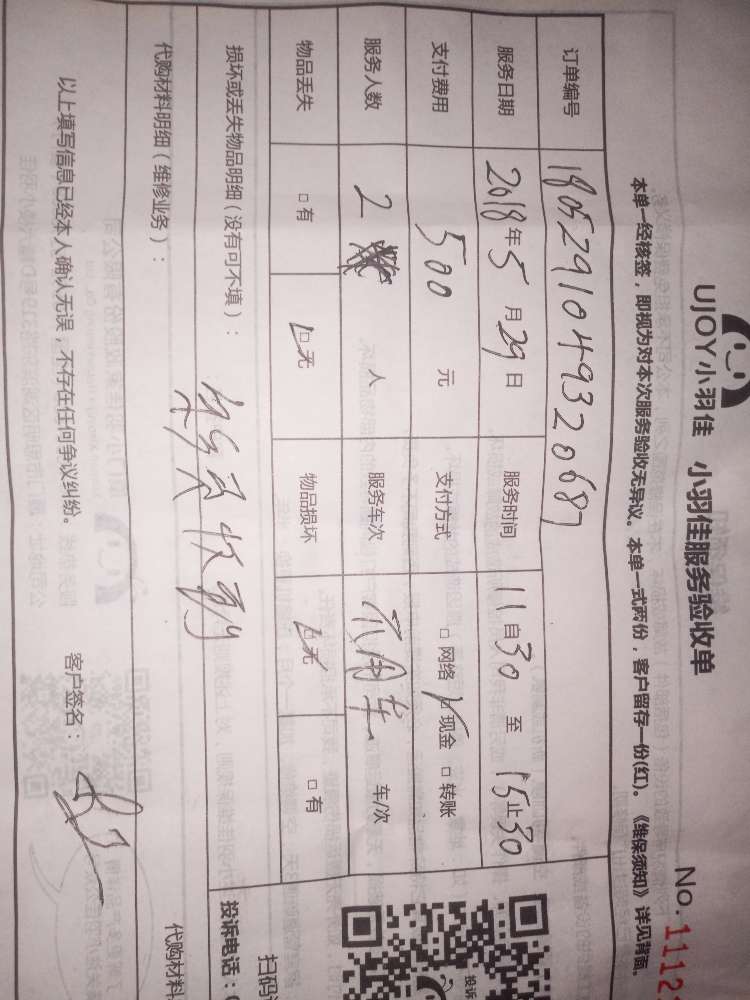 UJOY小羽佳 小羽佳服务验收单
No.1112
本单一经核签，即视为对本次服务验收无异议。本单一式两份，客户留存一份(红)。《维保须知》详见背面。
订单编号 1805291049320687
服务日期 2018年5月29日 服务时间 11自30 至 15止30
支付费用 500 元 支付方式 □网络 ☑现金 □转账
服务人数 2 人 服务车次 不用车 车/次
物品丢失 □有 ☑无 物品损坏 ☑无 □有
损坏或丢失物品明细（没有可不填）：
代购材料明细（维修业务）：
代购材料
以上填写信息已经本人确认无误，不存在任何争议纠纷。 客户签名：
投诉
扫码
投诉电话：